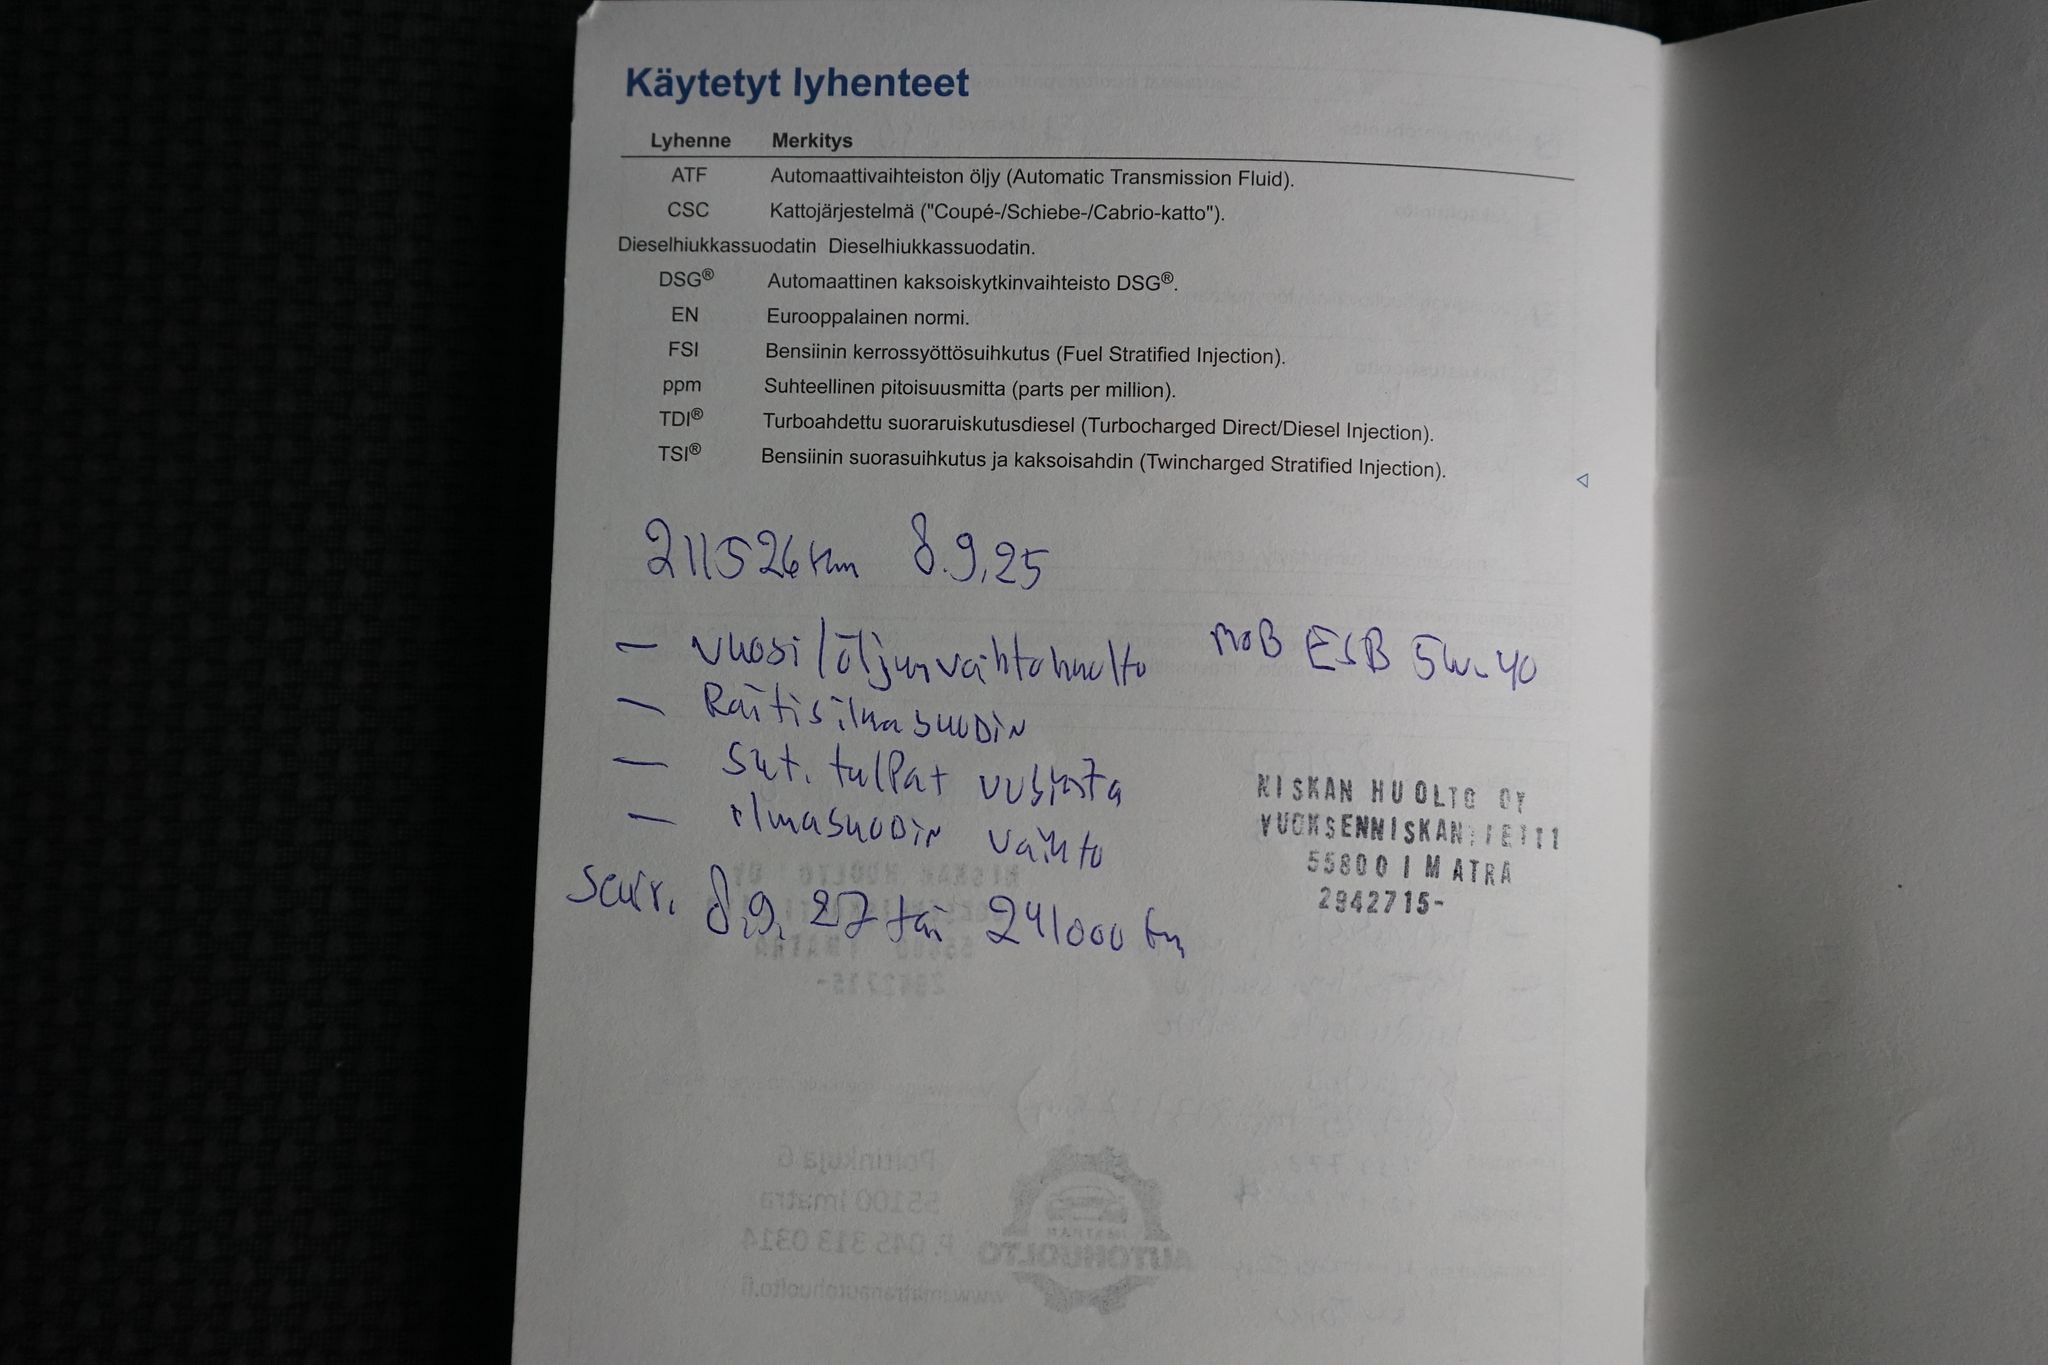 Käytetyt lyhenteet
Lyhenne Merkitys
ATF Automaattivaihteiston öljy (Automatic Transmission Fluid).
CSC Kattojärjestelmä ("Coupé-/Schiebe-/Cabrio-katto").
Dieselhiukkassuodatin Dieselhiukkassuodatin.
DSG® Automaattinen kaksoiskytkinvaihteisto DSG®.
EN Eurooppalainen normi.
FSI Bensiinin kerrossyöttösuihkutus (Fuel Stratified Injection).
ppm Suhteellinen pitoisuusmitta (parts per million).
TDI® Turboahdettu suoraruiskutusdiesel (Turbocharged Direct/Diesel Injection).
TSI® Bensiinin suorasuihkutus ja kaksoisahdin (Twincharged Stratified Injection).
211526 km 8.9.25
- vuosi/öljynvaihtohuolto MOB ESB 5W-40
- Raitisilmasuodin
- Syt. tulpat uusinta
- ilmasuodin vaihto
seur. 8.9.27 tai 241000 km
NISKAN HUOLTO OY
VUOKSENNISKANTIE 111
55800 IMATRA
2942715-
Poitinkuja 6
55100 Imatra
P. 045 313 0314
AUTOHUOLTO
www.imatranautohuolto.fi